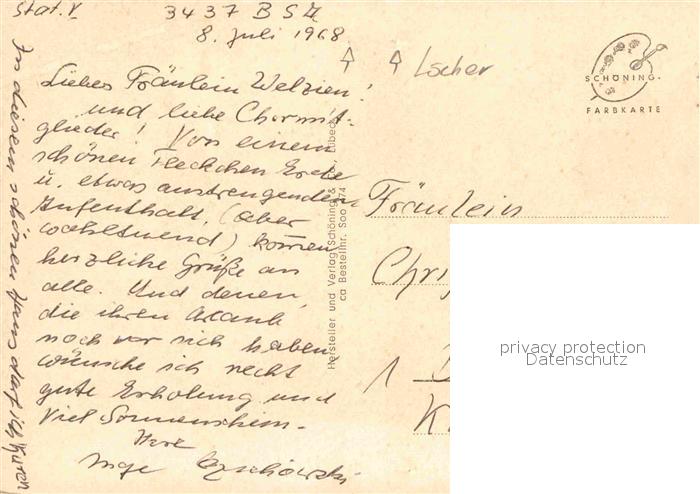 Stat. V
3437 BSZ
8. Juli 1968
Lscher
Liebes Fräulein Welzien!
und liebe Chormit-
glieder! Von einem
schönen Fleckchen Erde
u. etwas anstrengenden
Aufenthalt, (aber
wohltuend) kommen
herzliche Grüße an
alle. Und denen,
die ihren Urlaub
noch vor sich haben,
wünsche ich recht
gute Erholung und
viel Sonnenschein.
Ihre
Inge
In diesem schönen Haus darf ich kuren
Hersteller und Verlag Schöning & Co., Lübeck
ca Bestellnr. Soo 174
SCHÖNING-
FARBKARTE
Fräulein
Chri
1
K
privacy protection
Datenschutz